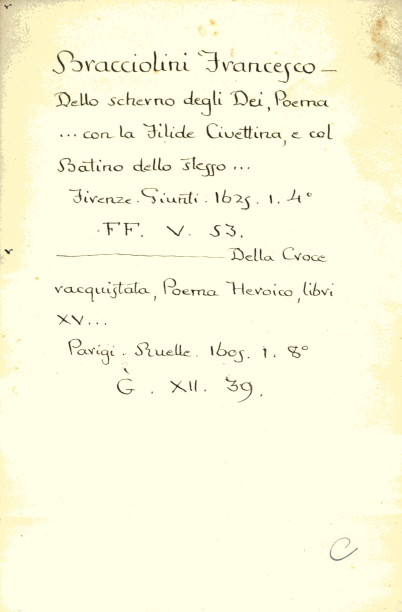 Bracciolini Francesco —
Dello scherno degli Dei, Poema
... con la Filide Civettina, e col
Batino dello stesso ...
Firenze. Giunti. 1625. 1. 4°
FF. V. 53.
——— Della Croce
racquistata, Poema Heroico, libri
XV...
Parigi. Ruelle. 1605. 1. 8°
G. XII. 39.
C